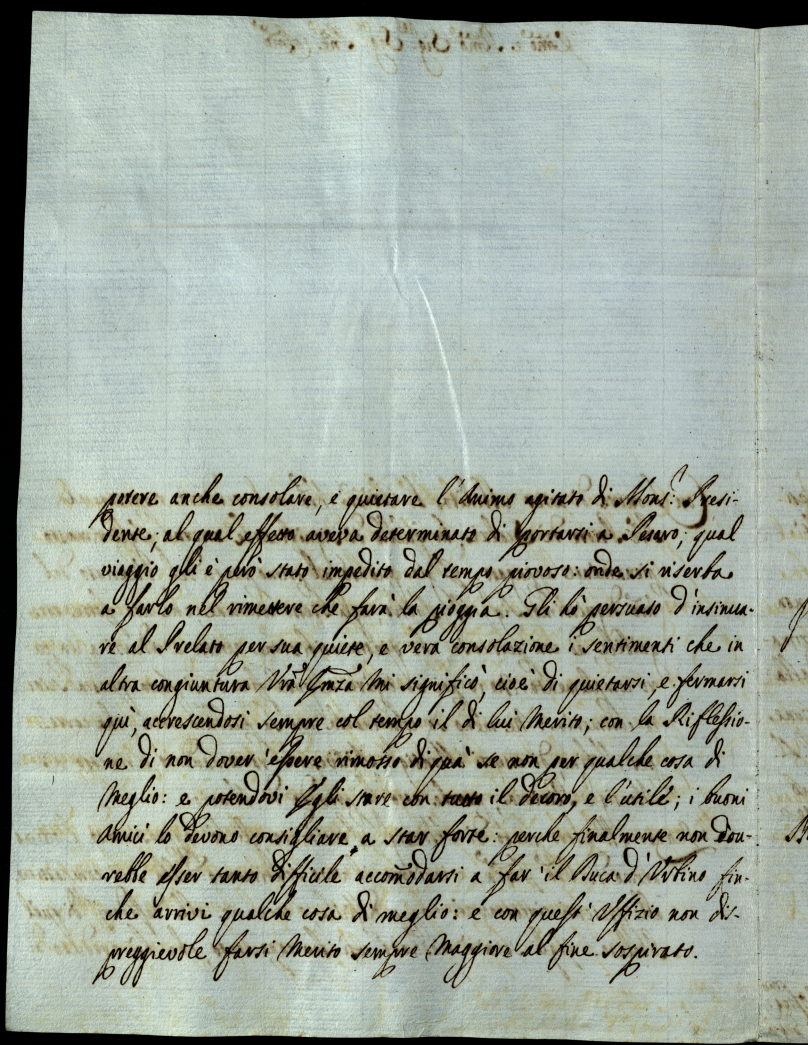 potere anche consolare, e quietare l'Animo agitato di Mons.r Presi-
dente; al qual effetto aveva determinato di portarsi a Pesaro; qual
viaggio gli è però stato impedito dal tempo piovoso: onde si riserba
a farlo nel rimettere che farà la pioggia. Gli hò persuaso d'insinua-
re al Prelato per sua quiete, e vera consolazione i sentimenti che in
altra congiuntura Vrā Emza mi significò, cioè di quietarsi, e fermarsi
quì, accrescendosi sempre col tempo il di lui Merito; con la Riflessio-
ne di non dover essere rimosso di quà se non per qualche cosa di
Meglio: e potendovi Egli stare con tutto il decoro, e l'utile; i buoni
Amici lo devono consigliare a star forte: perche finalmente non dov-
rebbe esser tanto difficile accomōdarsi a far il Duca d'Urbino fin-
che arrivi qualche cosa di meglio: e con quest'Uffizio non dis-
preggievole farsi Merito sempre Maggiore al fine sospirato.